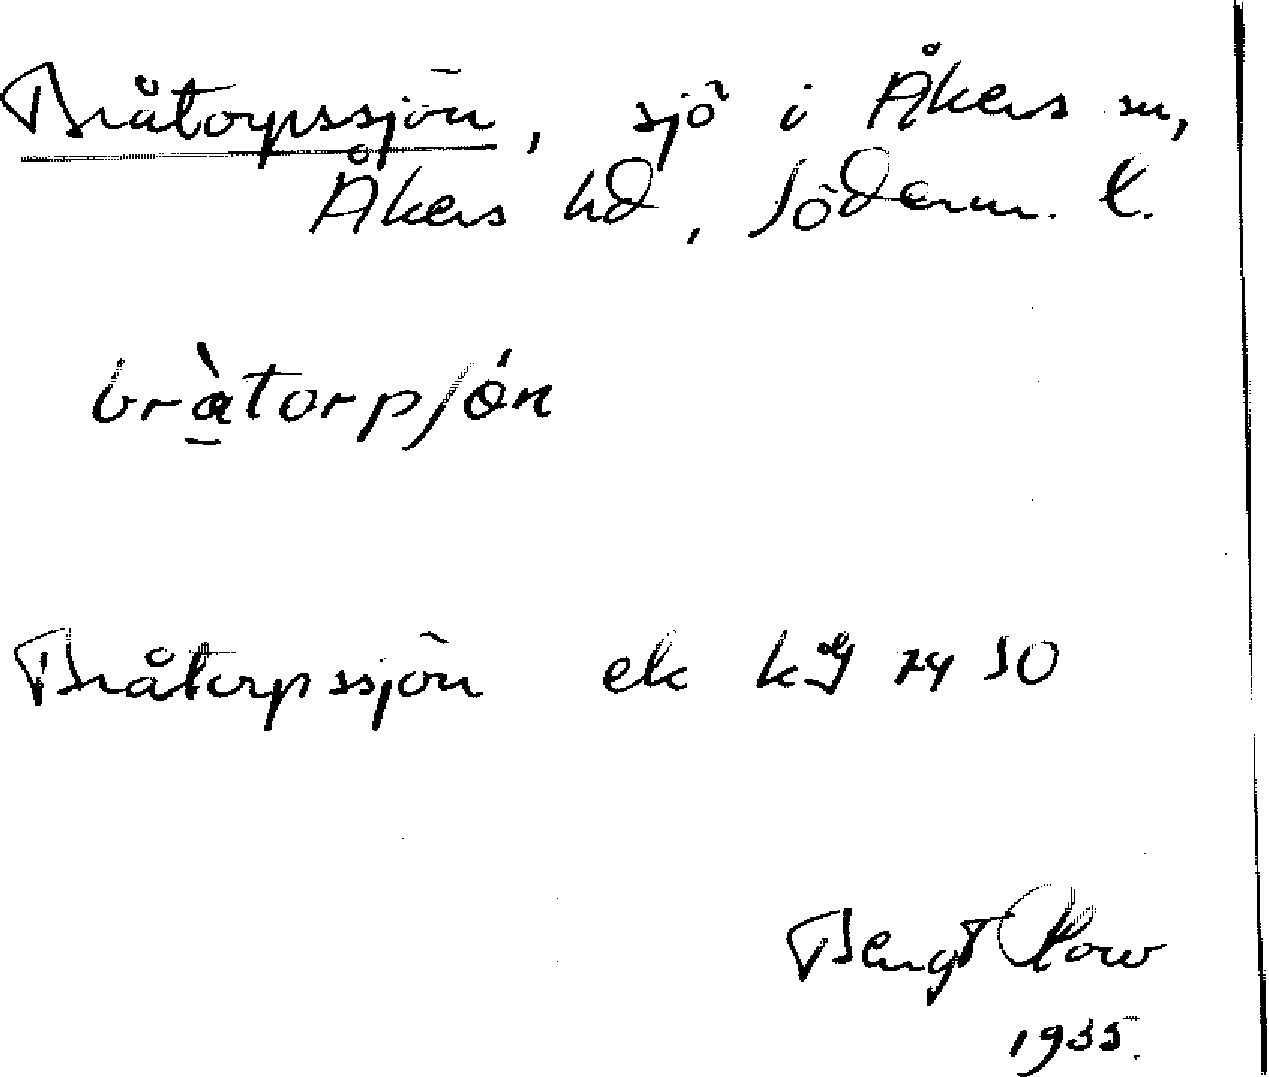 Bråtorpssjön, sjö i Åkers sn,
Åkers hd, Söderm. l.
brà̱torpʃön
Bråtorpssjön ek
Bengt
1935.